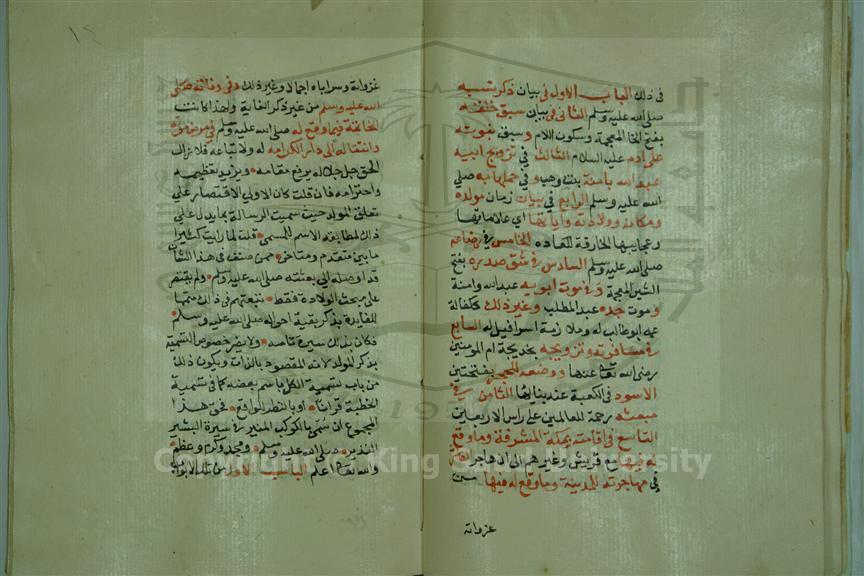 في ذلك الباب الاول في بيان ذكر نسبه
صلى الله عليه وسلم الثاني في بيان سبق خلقته
بفتح الخا المعجمة وسكون اللام وسبق نبوته
على ادم عليه السلام الثالث في تزويج ابيه
عبد الله بامنة بنت وهب وفي حملها به صلى
الله عليه وسلم الرابع في بيان زمان مولده
ومكانه وولادته واياتها اي علاماتها
وعجايبها الخارقة للعاده الخامس في رضاعه
صلى الله عليه وسلم السادس في شق صدره بفتح
الشين المعجمة وفي موت ابويه عبد الله وامنة
وموت جده عبد المطلب وغير ذلك ككفالة
عمه ابو طالب له وملازمة اسرافيل له السابع
في مسافرته وتزويجه بخديجة ام المومنين
رضي الله تعالى عنها ووضعه الحجر بفتحتين
الاسود في الكعبة عند بنايها الثامن في
مبعثه رحمة للعالمين على راس الاربعين
التاسع في اقامته بمكة المشرفة وما وقع
له بها مع قريش وغيرهم الى ان هاجر
في مهاجرته للمدينة وما وقع له فيها من
غزواته
غزواته وسراياه اجمالا وغير ذلك وفي وفاته صلى
الله عليه وسلم من غير ذكر الغاية ولهذا كانت
الخاتمة فيما وقع له صلى الله عليه وسلم في مرض موته
وانتقاله الى دار الكرامه له ولاتباعه فلا زال
الحق جل جلاله يرفع مقامه ويزيد تعظيمه
واحترامه فان قلت كان الاولى الاقتصار على
تعلق المولد حيث سميت الرسالة بما يدل على
ذلك لمطابقة الاسم للمسمى قلت لما رايت كثيرا
ما بين متقدم ومتاخر ممن صنف في هذا الشان
قد اوصله الى بعثته صلى الله عليه وسلم ولم يقتصر
على مبحث الولادة فقط تبعتهم في ذلك متمما
للفايدة بذكر بقية احواله صلى الله عليه وسلم
فكان بذلك سيرة تامه ولا يضر خصوص التسمية
بذكر المولد لانه المقصود بالذات ويكون ذلك
من باب تسمية الكل باسم بعضه كما في تسمية
الخطبة قرانا او بالنظر للواقع فحق هذا
المجموع ان سمي بالكوكب المنير في سيرة البشير
النذير صلى الله عليه وسلم ومجد وكرم وعظم
والله تعالى اعلم الباب الاول من تلك الابواب
Copyright © King Saud University